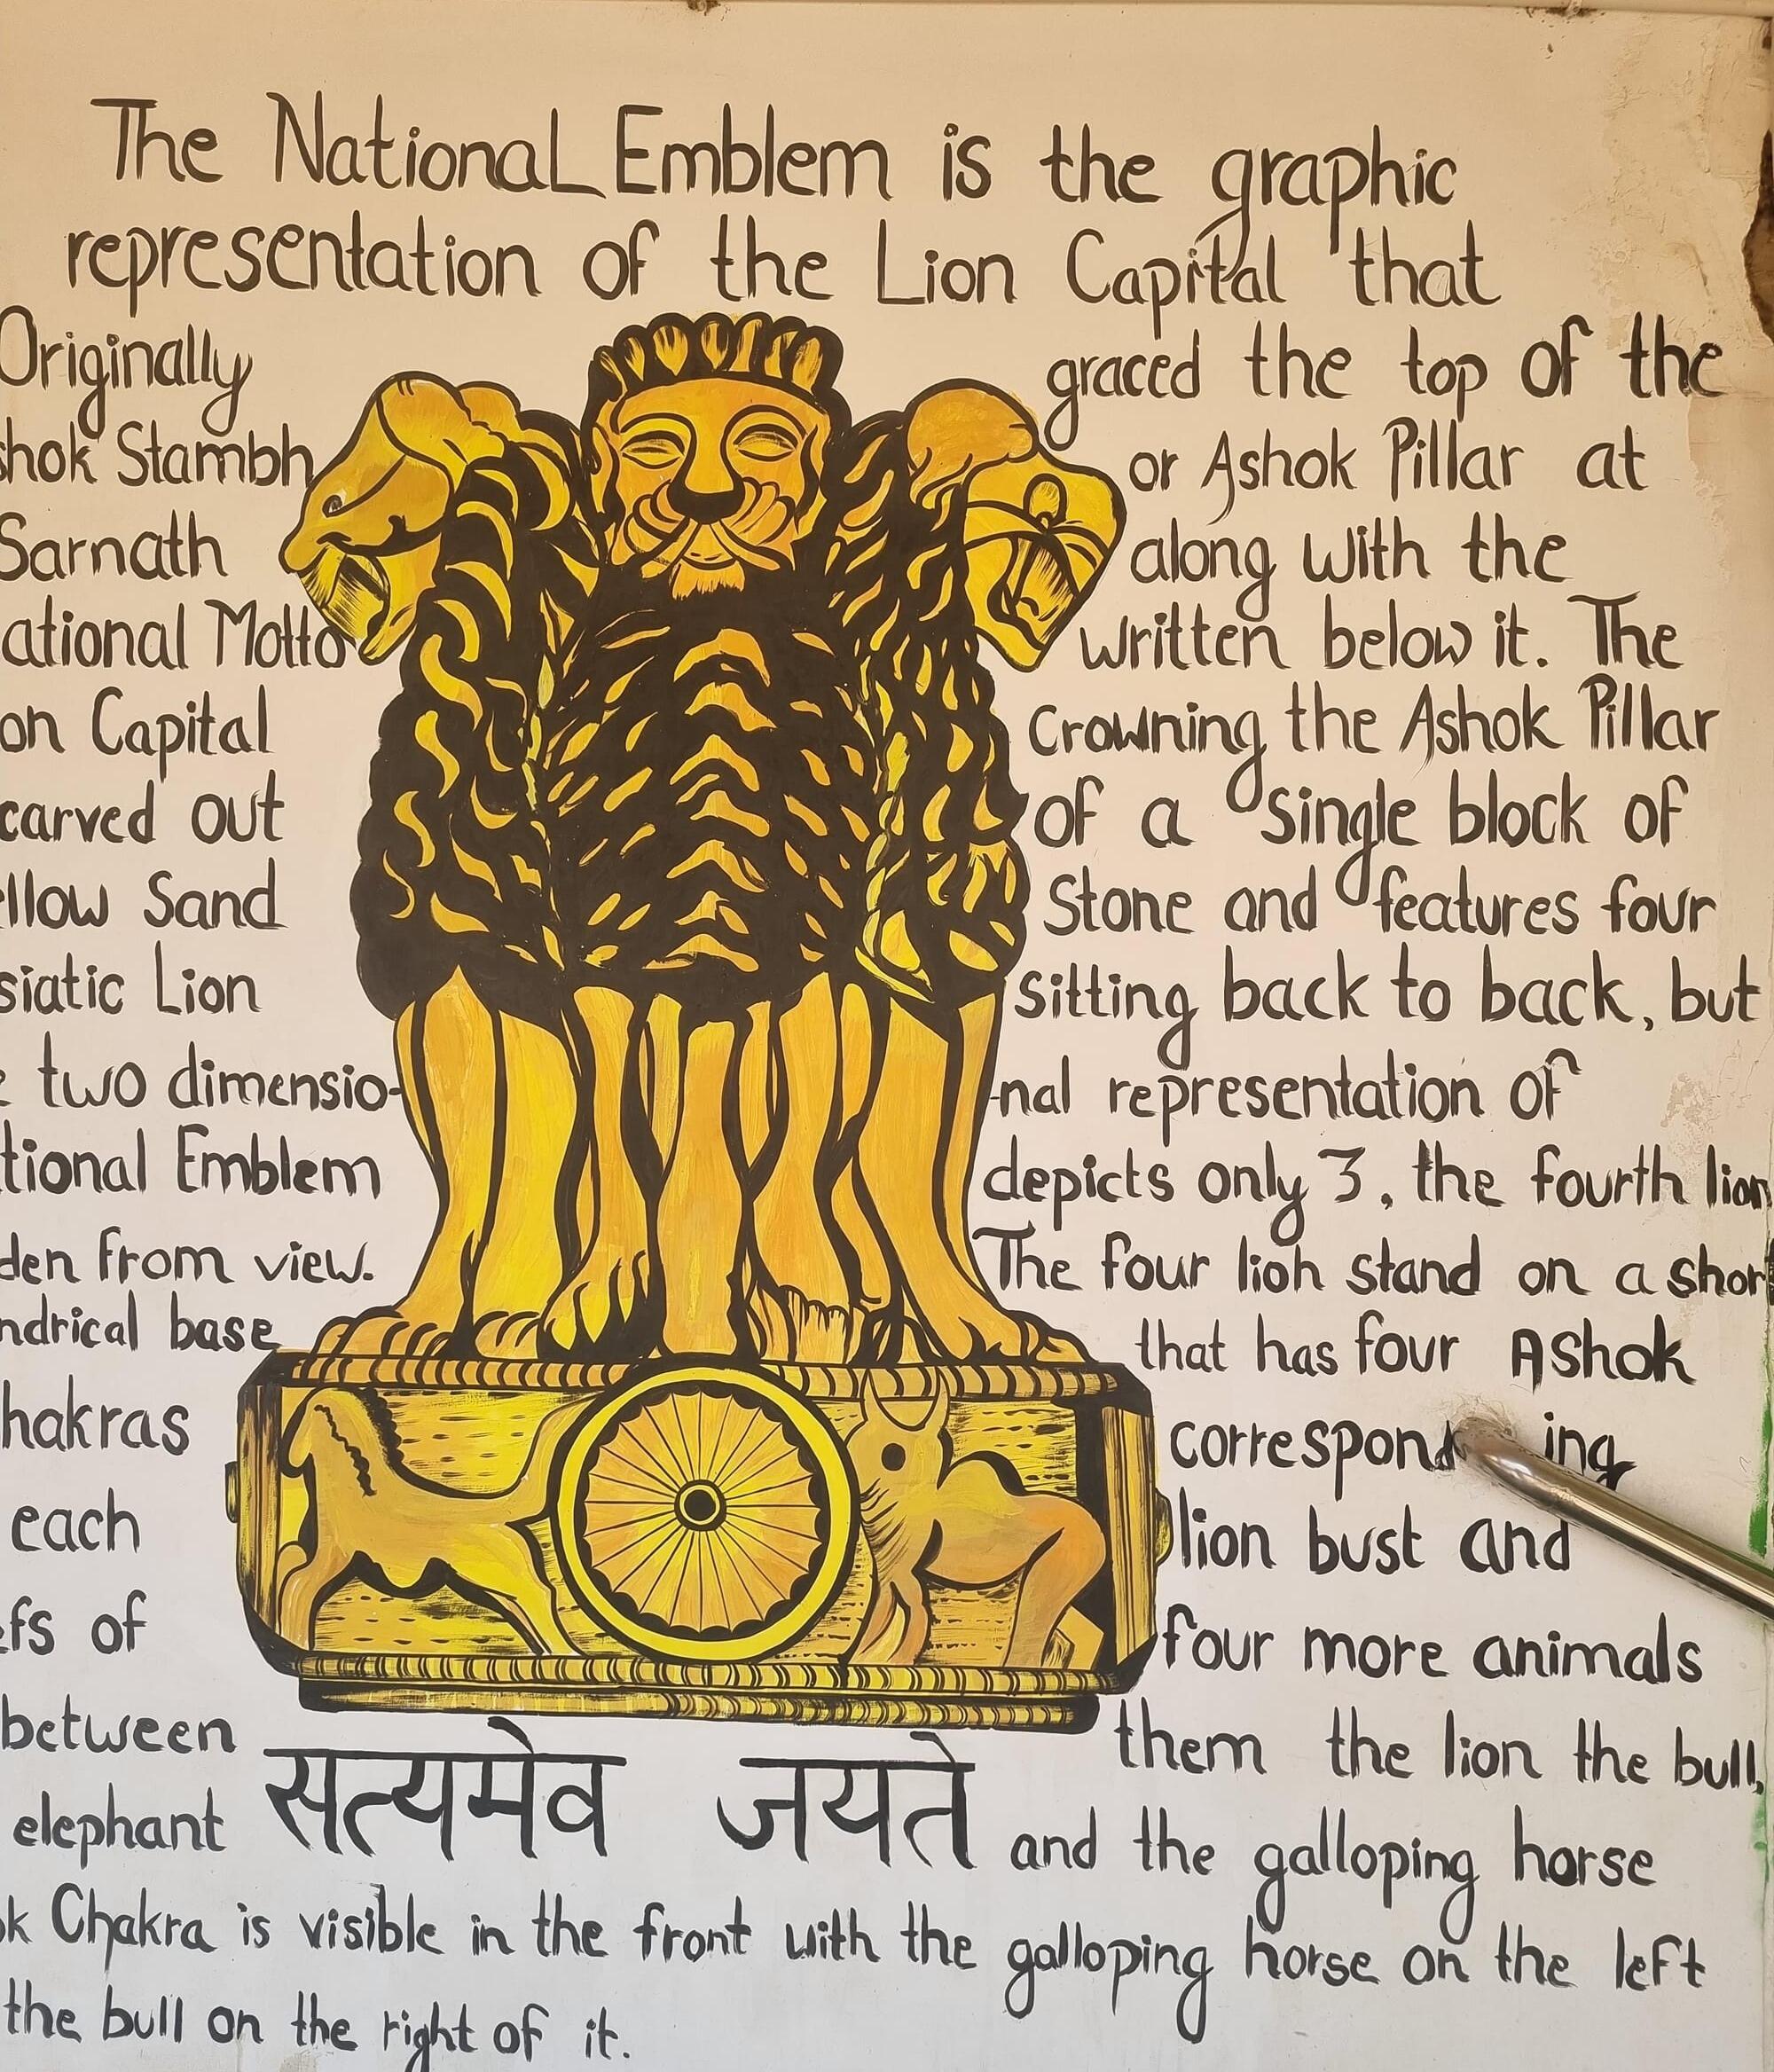 The National Emblem is the graphic
representation of the Lion Capital that
Originally graced the top of the
Stambh or Ashok Pillar at
Sarnath along with the
Motto written below it. The
Capital crowning the Ashok Pillar
carved out of a single block of
Sand Stone and features four
Lion sitting back to back, but
two dimensio- -nal representation of
Emblem depicts only 3, the fourth lion
from view. The four lioh stand on a
base that has four Ashok
corresponding
each lion bust and
of four more animals
between them the lion the bull,
elephant and the galloping horse
सत्यमेव जयते
Chakra is visible in the front with the galloping horse on the left
the bull on the right of it.